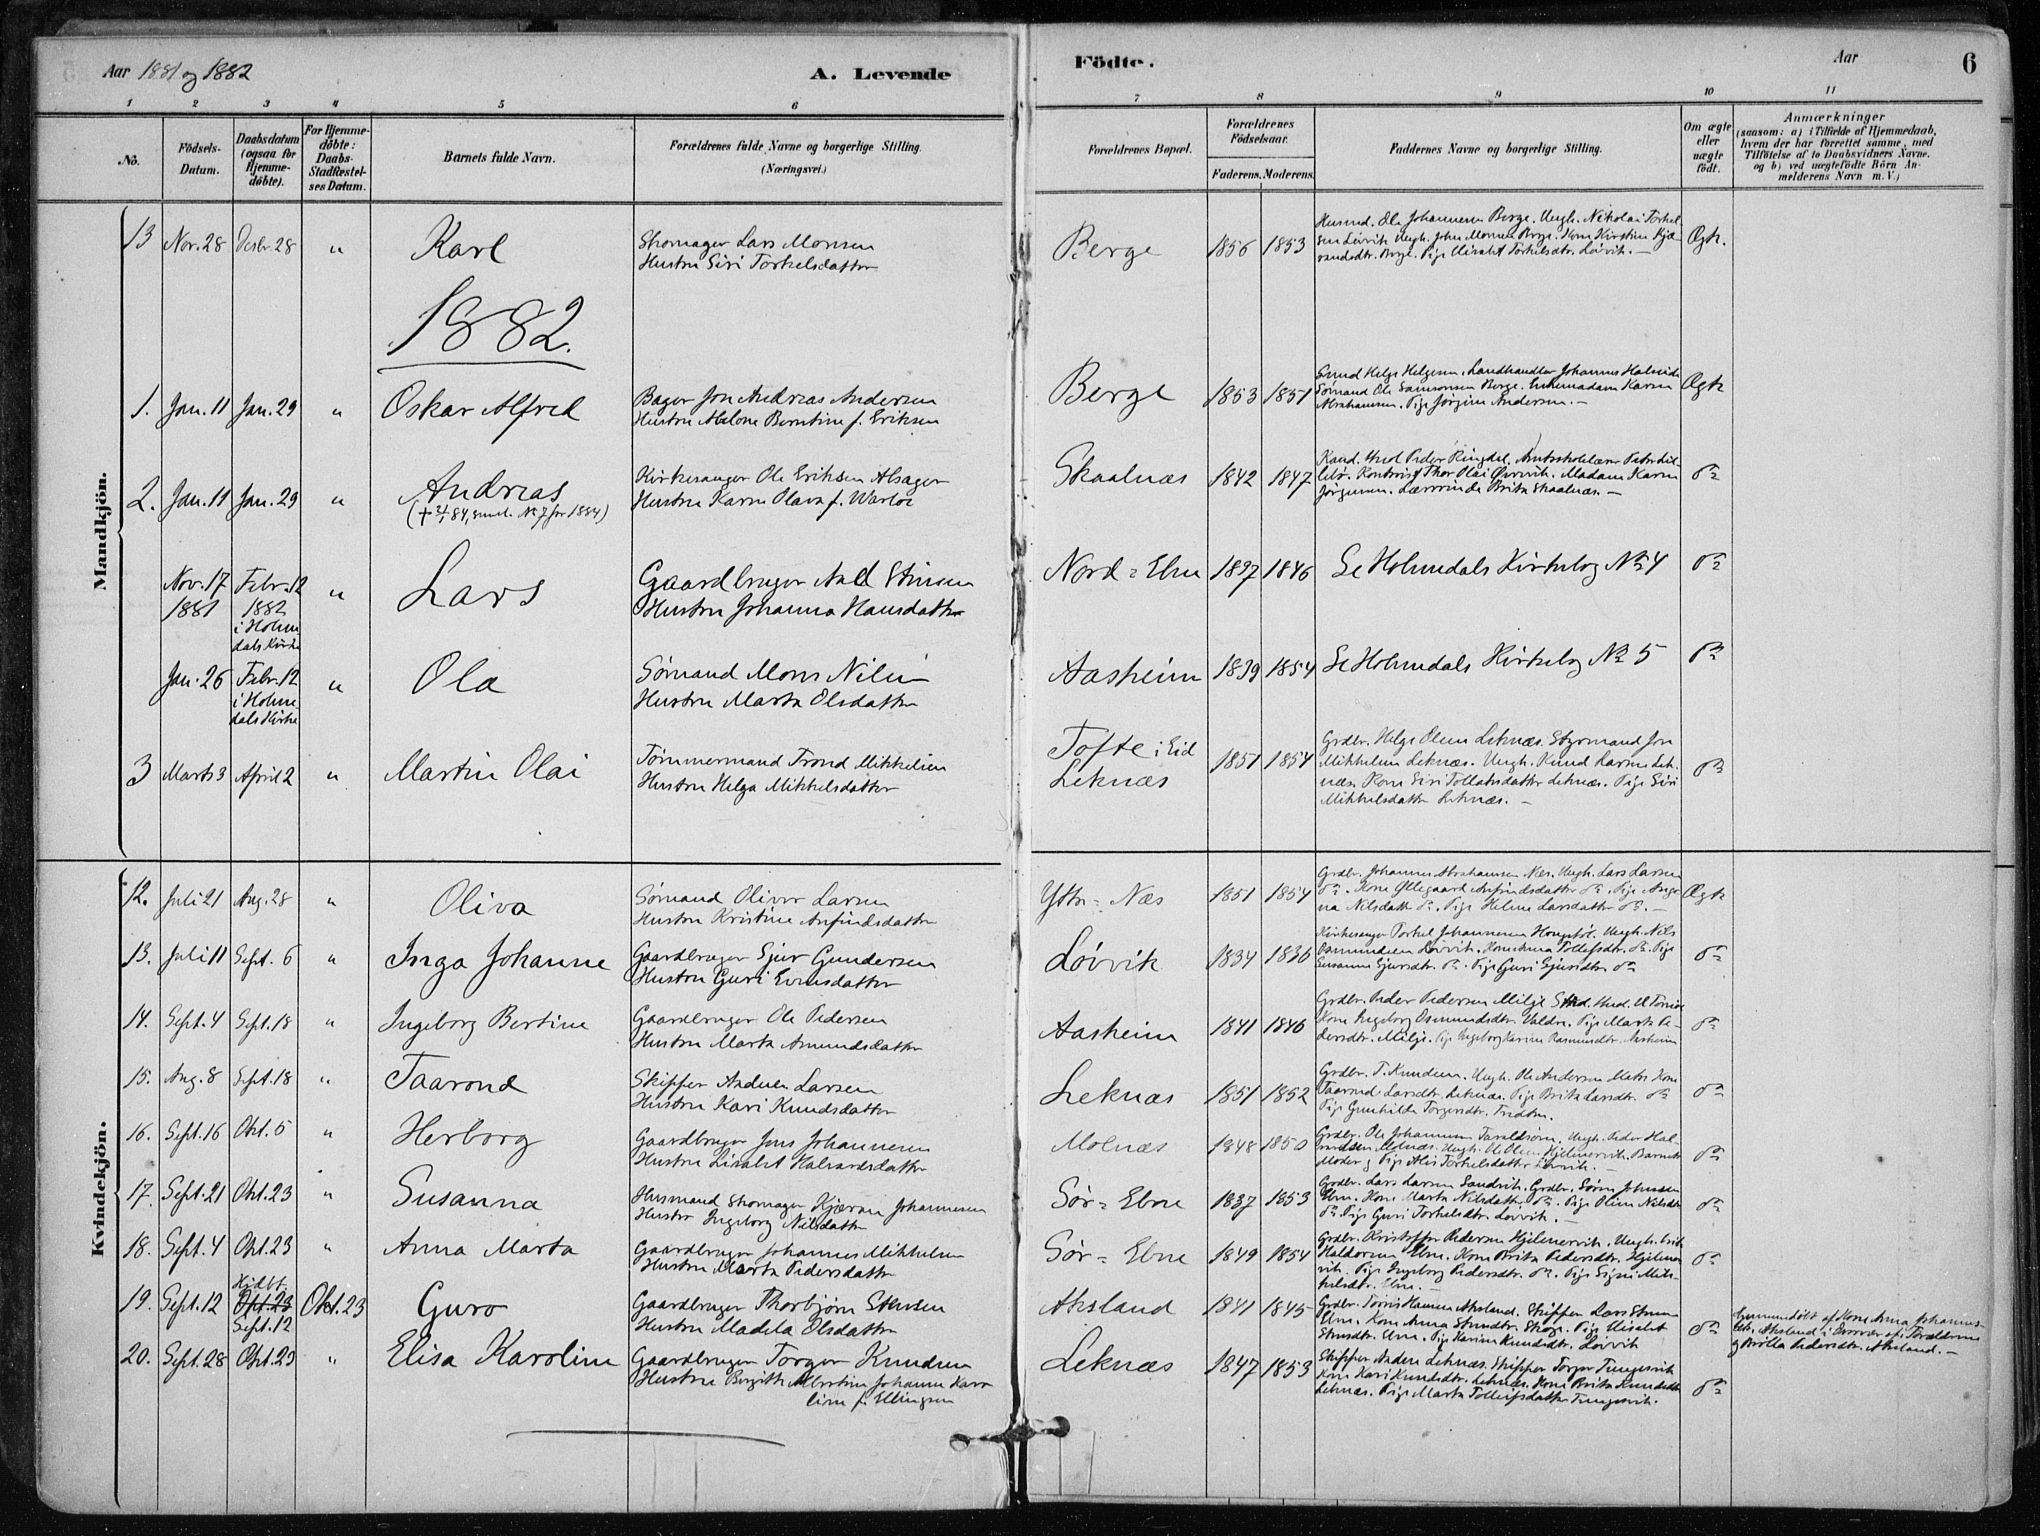 Aar 1881 og 1882
A. Levende
Födte.
Aar
6
1 2 3 4 5 6 7 8 9 10 11
No.
Födsels-Datum.
Daabsdatum (ogsaa for Hjemme-döbte).
For Hjemme-döbte: Daabs-Stadfæstel-ses Datum.
Barnets fulde Navn.
Forældrenes fulde Navne og borgerlige Stilling. (Næringsvei.)
Forældrenes Bopæl.
Forældrenes Födselsaar.
Faderens. Moderens.
Faddernes Navne og borgerlige Stilling.
Om ægte eller uægte födt.
Anmærkninger
(saasom: a) i Tilfælde af Hjemmedaab, hvem der har forrettet samme, med Tilföielse af to Daabsvidners Navne. og b) ved uægtefödte Börn An-melderens Navn m. V.)
Mandkjön.
13 Nov. 28 Decbr. 28 " Karl
Skomager Lars Monsen
Hustru Siri Torkelsdatter
Berge 1856 1853
Husmd. Ola Johannesen Berge. Ungk. Nikolai Torkel-
sen Løvvik. Ungk. John Monsen Berge. Kone Kirstine Kjæ-
randsdtr. Berge. Pige Elisabet Torkelsdtr. Løvvik. —
Ægte.
1882.
1. Jan. 11 Jan. 29 " Oskar Alfred
Bager Jon Andreas Andersen
Hustru Malene Berntine f. Eriksen
Berge 1853 1851
Helge Helgesen, Landhandler Johannes
Sømand Ole Samsonsen Berge. Enkemadam Karen
Abrahamsen. Pige Jørgine Andersen. —
Ægte
2. Jan. 11 Jan. 29 " Andreas
( 84, No 7 for 1884)
Kirkesanger Ole Eriksen Alsager
Hustru Karen Olava f. Warloe
Skaalnæs 1842 1847
Kand. theol Peder Ringdal, Amtsskolelærer Peter Lil-
lebø. Kontorist Thor Olai Madam Karen
Jørgensen. Lærerinde Brita Skaalnæs. —
do
Nov. 17 1881 Febr. 12 1882 i Holme-dals Kirke " Lars
Gaardbruger Axel Stinsen
Hustru Johanna Hansdatter
Nord-Ebne 1837 1846 Se Holmedals Kirkebog No 4 do
Jan. 26 Febr. 12 i Holme-dals Kirke " Ola
Sømand Mons Nilsen
Hustru Marta Olsdatter
Aasheim 1839 1854 Se Holmedals Kirkebog No 5 do
3 Marts 3 April 2 " Martin Olai
Tømmermand Trond Mikkelsen
Hustru Helga Mikkelsdatter
Tofte i Eid
Leknæs
1851 1854
Grdbr. Helge Olsen Leknæs. Styrmand Jon
Mikkelsen Leknæs. Ungk. Knud Larsen Lek-
næs. Kone Siri Tollaksdatter Leknæs. Pige Siri
Mikkelsdatter Leknæs. —
do
Kvindekjön.
12. Juli 21 Aug. 28 " Oliva
Sømand Oliver Larsen
Hustru Kristine Anfindsdatter
Yttre-Næs 1851 1854
Grdbr. Johannes Abrahamsen Næs. Ungk. Lars Larsen
do. Kone Øllegaard Anfindsdatter do. Pige
Nilsdatter do. Pige Helene Larsdatter do. —
Ægte
13. Juli 11 Sept. 6 " Inga Johanne
Gaardbruger Sjur Gundersen
Hustru Guri Evensdatter
Løvvik 1834 1836
Kirkesanger Torkel Johannesen Ungk. Nils
Løvvik. Kone Anna Tollefsdtr. do. Pige
Susanna Sjursdtr. do. Pige Guri Sjursdtr. do
do
14. Sept. 4 Sept. 18 " Ingeborg Bertine
Gaardbruger Ole Pedersen
Hustru Marta Amundsdatter
Aasheim 1841 1846
Grdbr. Peder Pedersen Milje
Kone Ingeborg Osmundsdtr. Valdre. Pige Marta Pe-
dersdtr. Milje. Pige Ingeborg Karine Rasmusdtr. Aasheim
do
15. Aug. 8 Sept. 18 " Taarond
Skipper Anders Larsen
Hustru Kari Knudsdatter
Leknæs 1851 1852
Grdbr. T. Knudsen. Ungk. Ole Andersen Kone
Taarond Larsdtr. Leknæs. Pige Brita Larsdtr. do
Pige Gunhilde Torgersdtr.
do
16. Sept. 16 Okt. 5 " Herborg
Gaardbruger Jens Johannesen
Hustru Lisabet Halvardsdatter
Molnæs 1848 1850
Grdbr. Ole Johannesen Ungk. Peder Hal-
Molnæs. Ungk. Barnets
Moder & Pige Alis Torkelsdatter Løvvik. —
do
17. Sept. 21 Okt. 23 " Susanna
Husmand Skomager Kjæran Johannesen
Hustru Ingeborg Nilsdatter
Sør-Ebne 1837 1853
Grdbr. Lars Larsen Sandvik. Grdbr. Søren Johnsen
Ebne. Kone Marta Nilsdatter do. Pige Oline Nilsdtr
do. Pige Guri Torkelsdtr. Løvvik. —
do
18. Sept. 4 Okt. 23 " Anna Marta
Gaardbruger Johannes Mikkelsen
Hustru Marta Pedersdatter
Sør-Ebne 1849 1854
Grdbr. Kristoffer Pedersen Ungk.
Haldorsen Ebne. Kone Brita Pedersdtr.
Pige Ingeborg Pedersdtr. do. Pige Signi Mik-
kelsdtr. Ebne. —
do
19. Sept. 12 Hjdbt. Okt. 23 Sept. 12 Okt. 23 Guro
Gaardbruger Thorbjørn Stensen
Hustru Madela Olsdatter
Aksland 1841 1845
Grdbr. Tørris Hansen Aksland. Skipper Lars
Ebne. Kone Anna Pige Elisabet
Ebne. Pige Karine Knudsdtr. Løvvik
do
Hjemmedøbt af Kone Anna Johannes-
dtr. Aksland i Overvær af Forældrene
og Brølla Pedersdtr. Aksland. —
20. Sept. 28 Okt. 23 " Elisa Karoline
Gaardbruger Torger Knudsen
Hustru Bergitte Albertine Johanne Karo-
line f. Ellingsen
Leknæs 1847 1853
Skipper Anders Leknæs. Skipper Torger Tungesvik
Kone Kari Knudsdtr. Leknæs. Kone Brita Knudsdtr
Leknæs. Pige Marta Tollefsdatter Tungesvik.
do